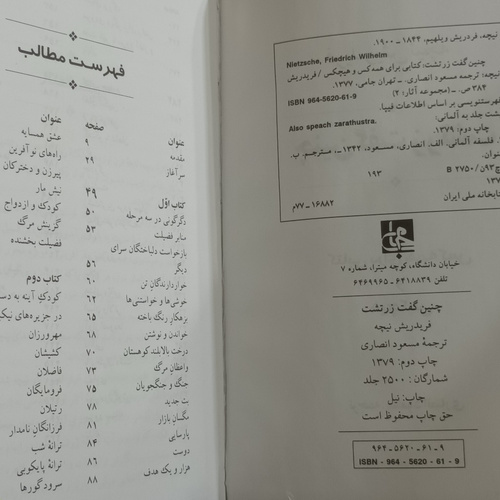 نیچه، فردریش ویلهیم، ۱۸۴۴ ـ ۱۹۰۰.
Nietzsche, Friedrich Wilhelm
چنین گفت زرتشت: کتابی برای همه‌کس و هیچکس / فریدریش
نیچه؛ ترجمه مسعود انصاری. ـ تهران جامی، ۱۳۷۷.
۳۸۴ ص. ـ (مجموعه آثار؛ ۲)
ISBN 964-5620-61-9
فهرستنویسی بر اساس اطلاعات فیپا.
پشت جلد به آلمانی:
Also speach zarathustra.
چاپ دوم: ۱۳۷۹.
فلسفه آلمانی. الف. انصاری، مسعود، ۱۳۴۲ـ، مترجم. ب.
عنوان.
۱۹۳
B ۲۷۵۰/
کتابخانه ملی ایران
۱۶۸۸۲ ـ ۷۷م
جامی
خیابان دانشگاه، کوچه میترا، شماره ۷
تلفن ۶۴۱۸۸۳۹ ـ ۶۴۶۹۹۶۵
چنین گفت زرتشت
فریدریش نیچه
ترجمۀ مسعود انصاری
چاپ دوم: ۱۳۷۹
شمارگان: ۲۵۰۰ جلد
چاپ: نیل
حق چاپ محفوظ است
۹۶۴-۵۶۲۰-۶۱-۹
ISBN - 964 - 5620 - 61 - 9
فهرست مطالب
عنوان صفحه
مقدمه ۹
سرآغاز ۲۹
کتاب اوّل ۴۹
دگرگونی در سه مرحله ۵۰
منابر فضیلت ۵۳
بازخواست دلباختگان سرای
دیگر ۵۶
خواردارندگان تن ۶۰
خوشی‌ها و خواستنی‌ها ۶۲
بزهکار رنگ باخته ۶۵
خواندن و نوشتن ۶۸
درخت بالابلند کوهستان ۷۰
واعظان مرگ ۷۳
جنگ و جنگجویان ۷۵
بت جدید ۷۸
مگسان بازار ۸۱
پارسایی ۸۴
دوست ۸۶
هزار و یک هدف ۸۸
عنوان
عشق همسایه
راه‌های نوآفرین
پیرزن و دخترکان
نیش مار
کودک و ازدواج
گزینش مرگ
فضیلت بخشنده
کتاب دوم
کودک آینه به دست
در جزیره‌های
مهرورزان
کشیشان
فاضلان
فرومایگان
رتیلان
فرزانگان نامدار
ترانۀ شب
ترانۀ پایکوبی
سرود گورها